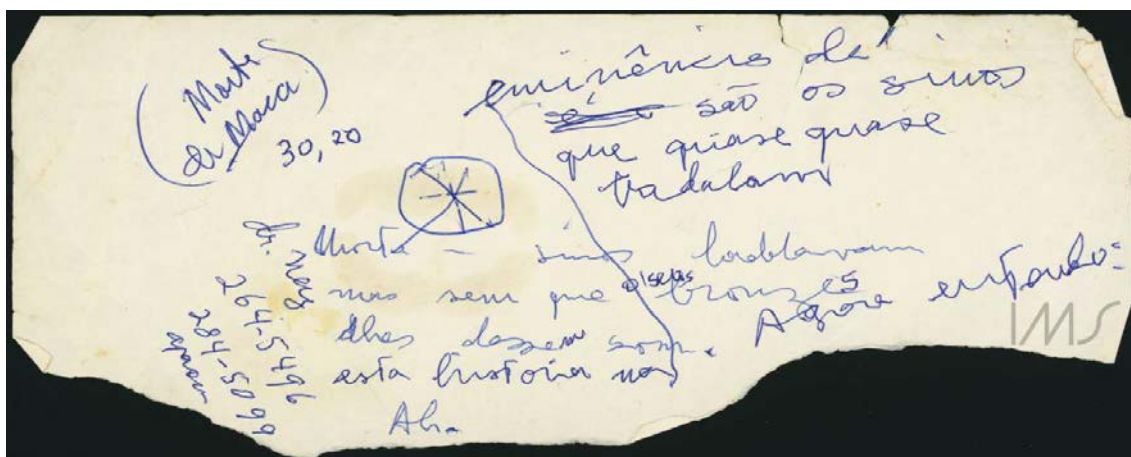 (Morte
de Maca)
30,20
eminência de
são os sinos
que quase quase
badalam
Morte — sinos badalavam
mas sem que os seus bronzes
lhes dessem som. Agora entendo:
esta história
Ah.
dr. Ney
264-5496
284-5099